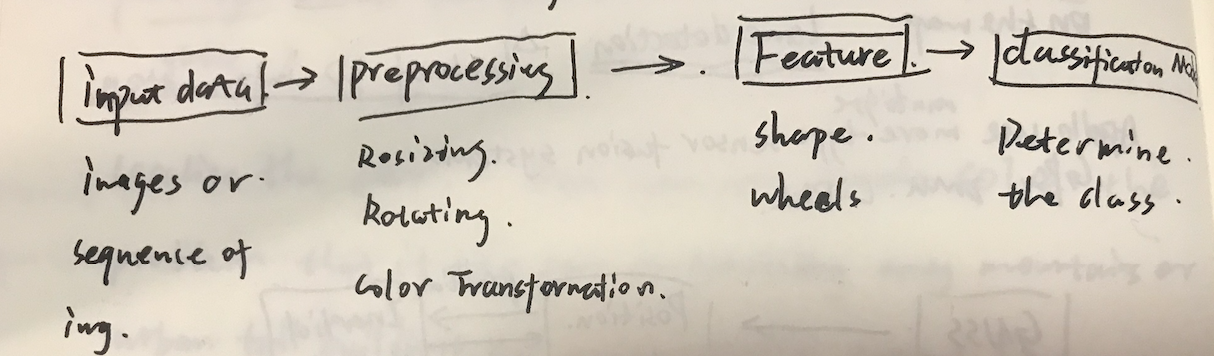 input data → preprocessing → Feature → classification
images or
sequence of
img.
Resizing.
Rotating.
Color Transformation.
shape.
wheels
Determine.
the class.